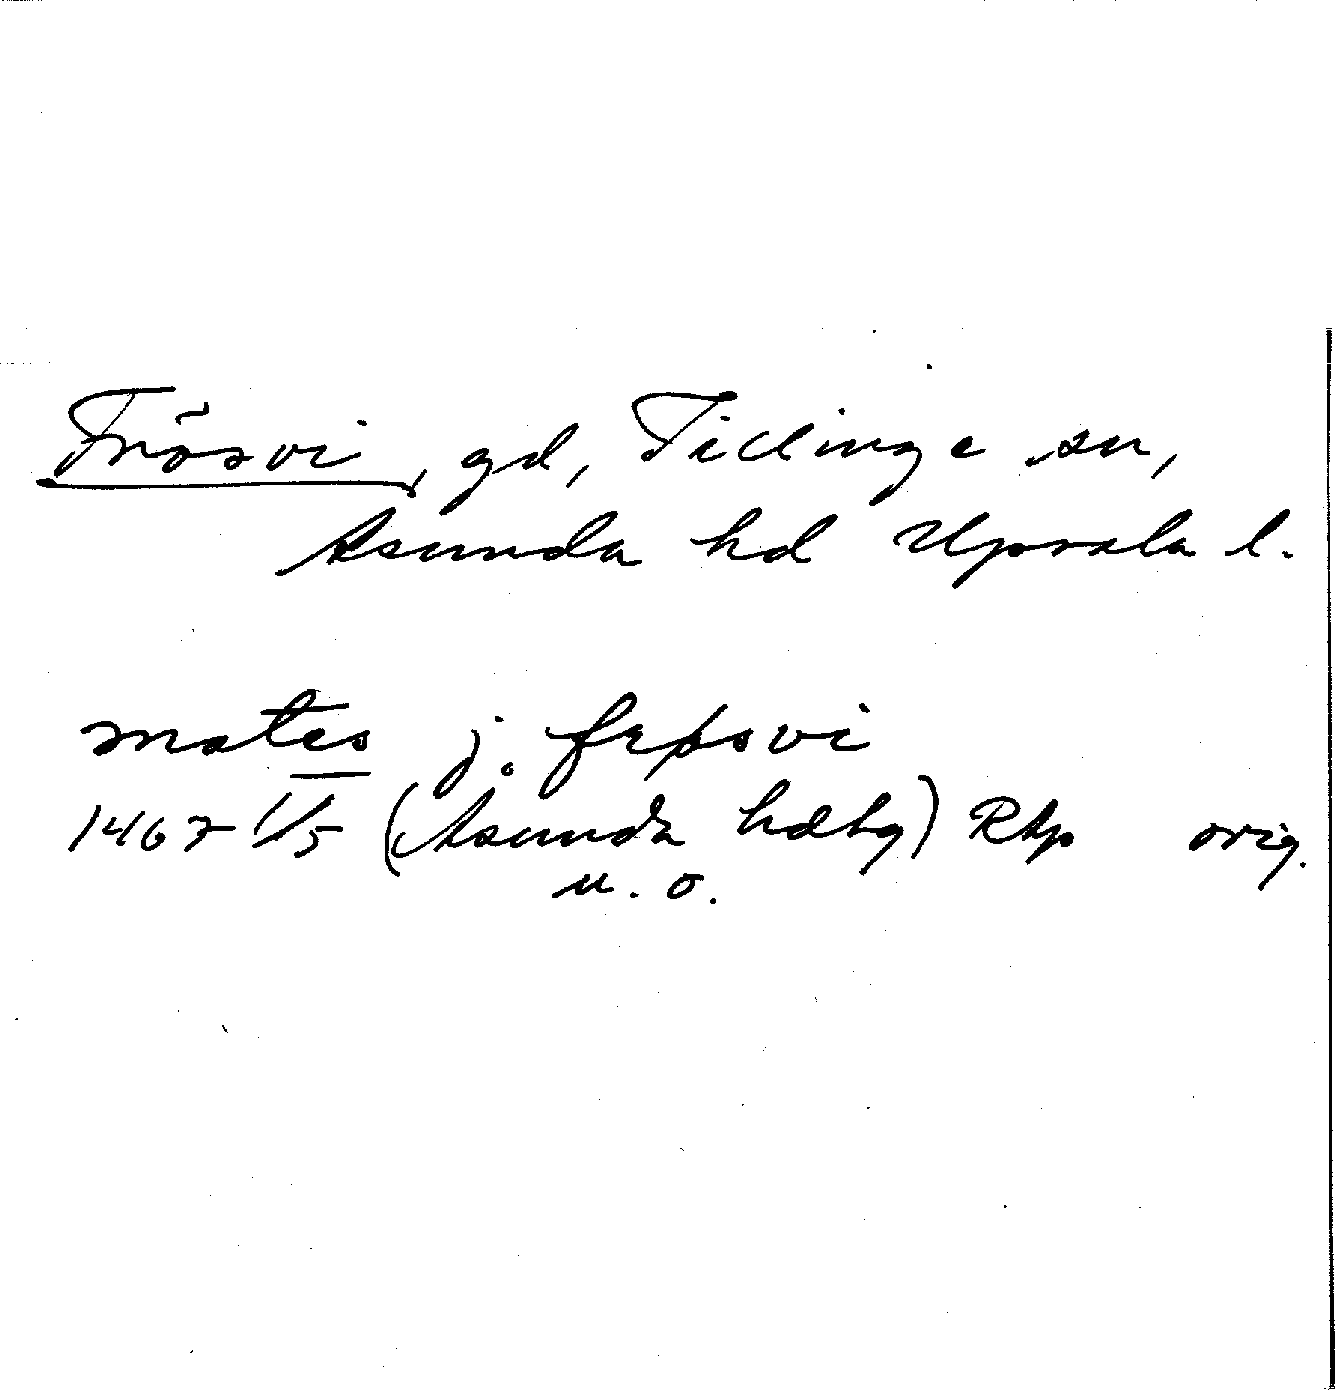 Frösvi, gd, Tillinge sn,
Asunda hd Uppsala l.
mates j. frøsvi
1467 1/5 (Asunda hdbg) RAp orig.
u. o.